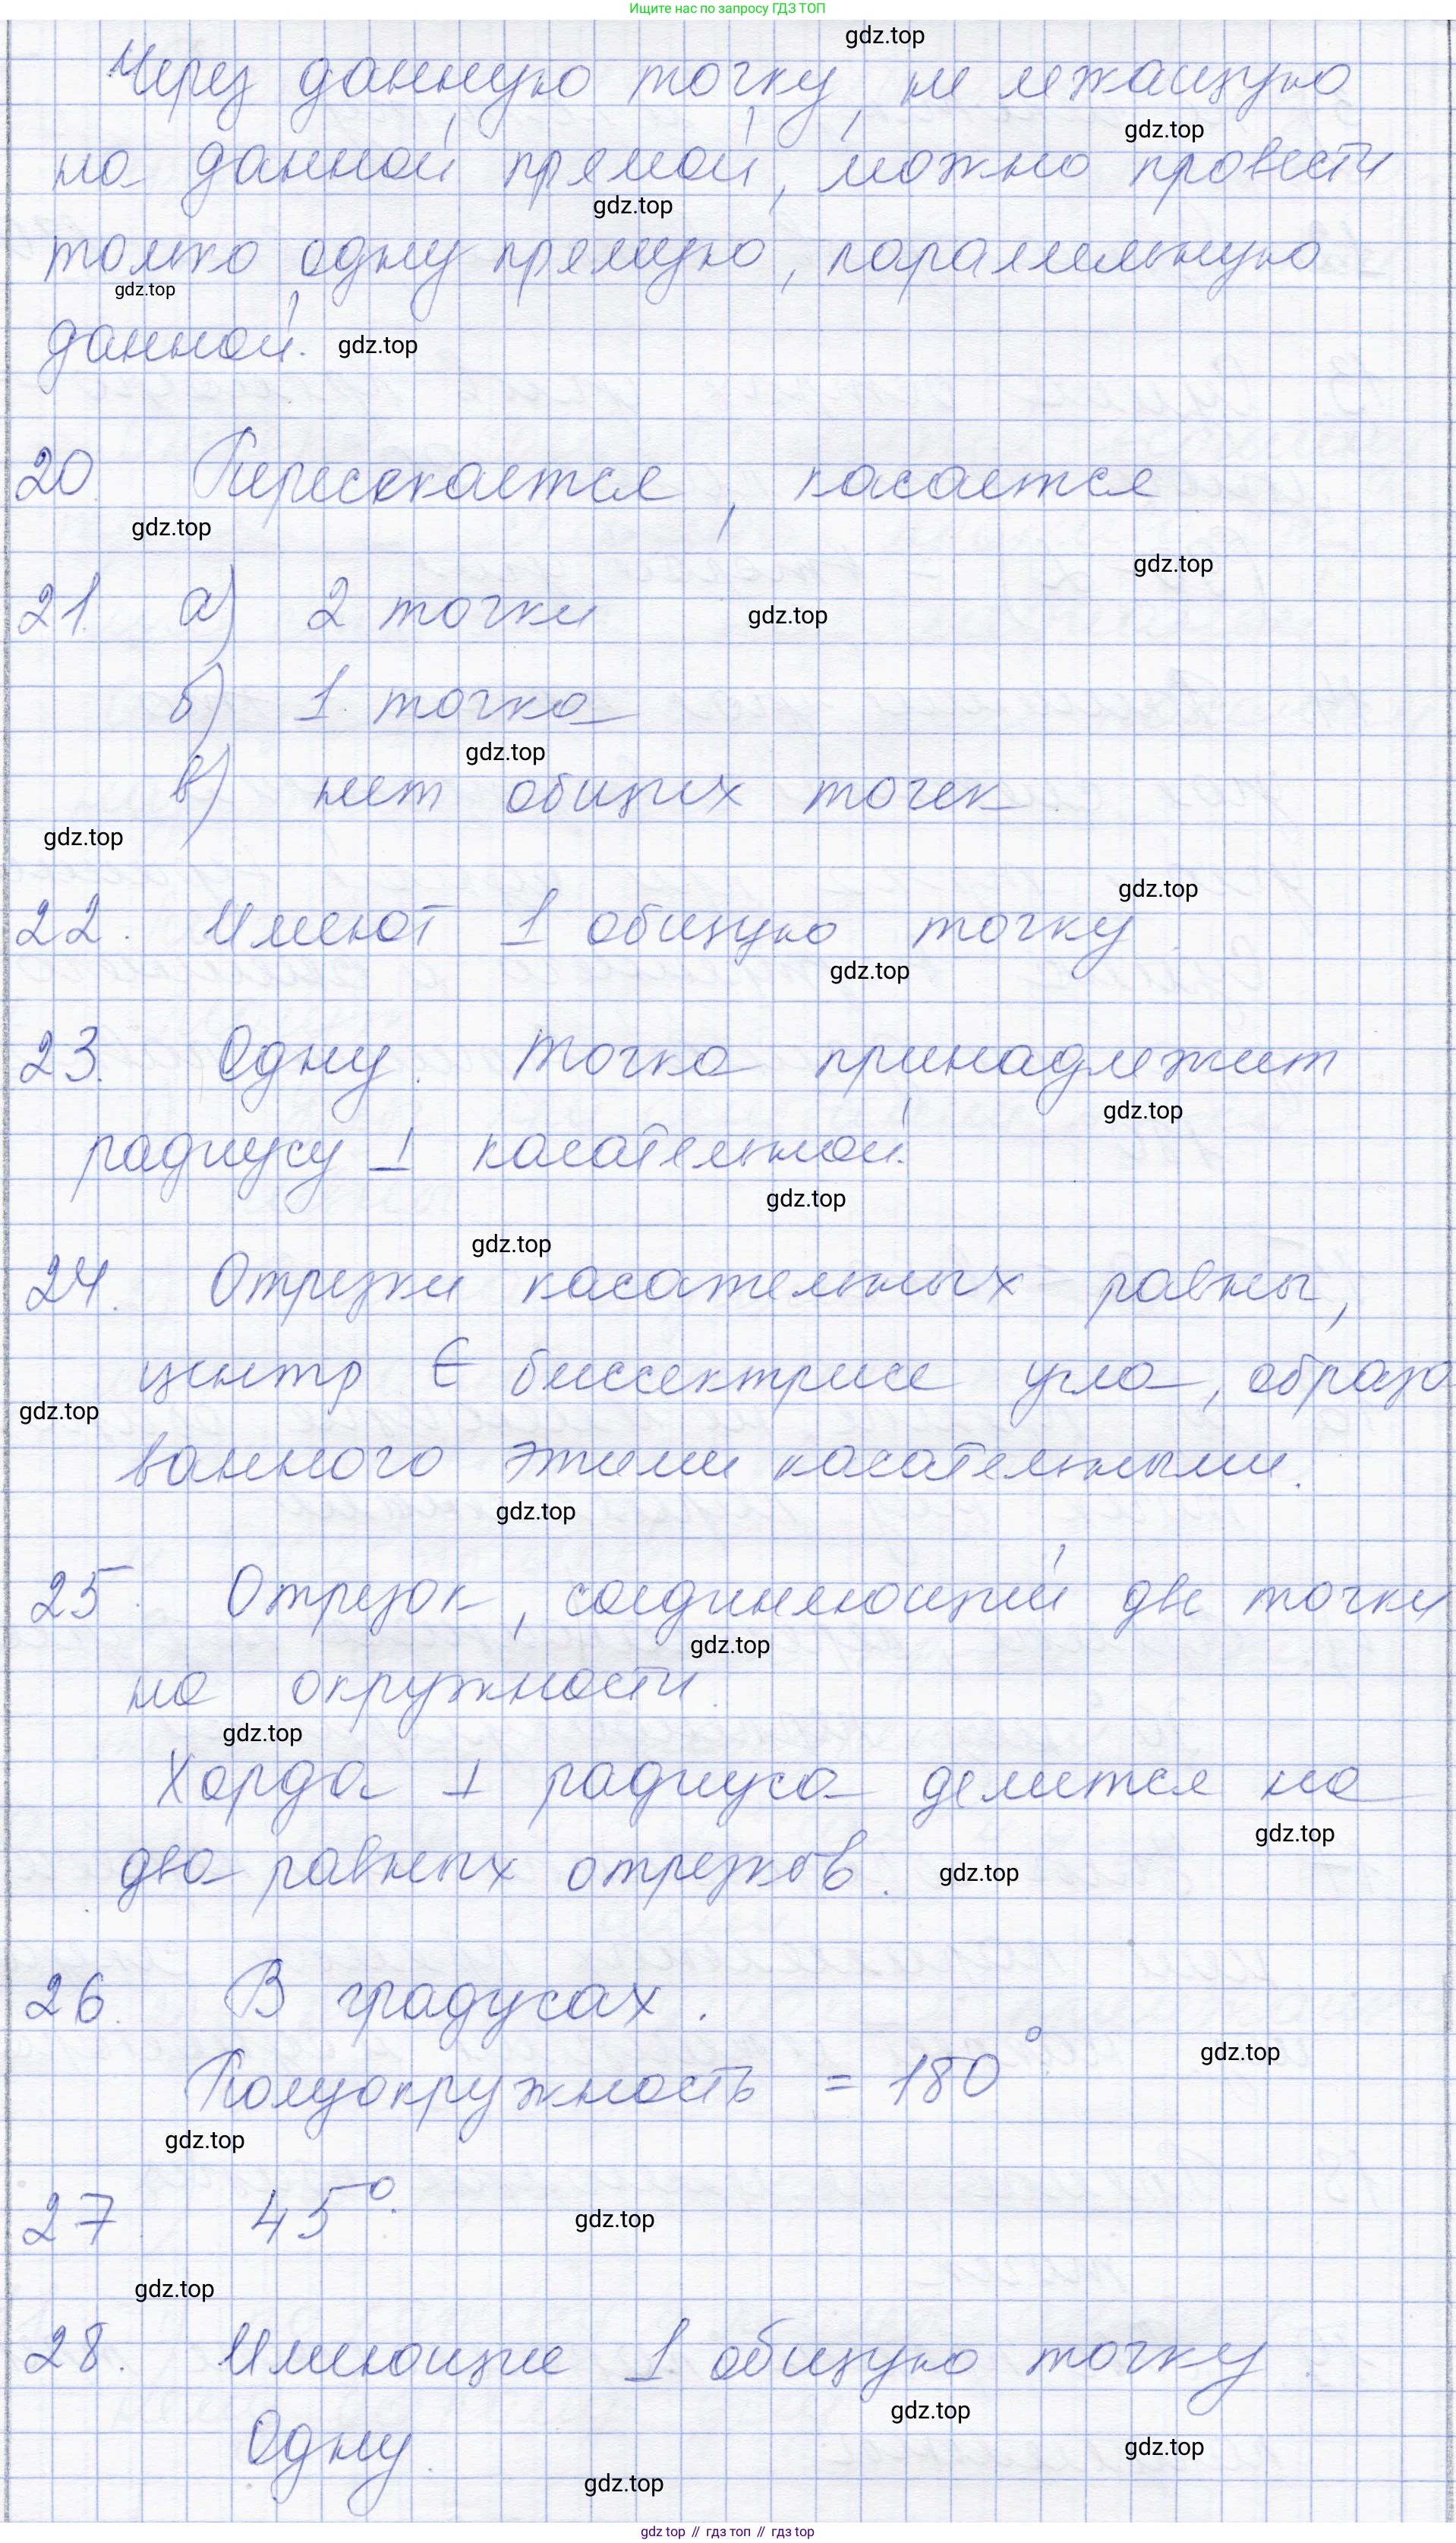 Ищите нас по запросу ГДЗ ТОП
gdz.top
Через данную точку, не лежащую
gdz.top
на данной прямой, можно провести
gdz.top
только одну прямую, параллельную
gdz.top
данной.
gdz.top
20. Пересекается, касается
gdz.top
gdz.top
21. а) 2 точки
gdz.top
б) 1 точка
gdz.top
в) нет общих точек.
gdz.top
gdz.top
22. Имеют 1 общую точку.
gdz.top
23. Одну. Точка принадлежит
gdz.top
радиусу ⊥ касательной.
gdz.top
gdz.top
24. Отрезки касательных равны,
центр ∈ биссектрисе угла, образо
gdz.top
ванного этими касательными.
gdz.top
25. Отрезок, соединяющий две точки
gdz.top
на окружности.
gdz.top
Хорда ⊥ радиуса делится на
gdz.top
два равных отрезков.
gdz.top
26. В градусах.
gdz.top
Полуокружность = 180°.
gdz.top
27. 45°.
gdz.top
gdz.top
28. Имеющие 1 общую точку.
gdz.top
Одну
gdz.top
gdz.top
gdz top // гдз топ // гдз top